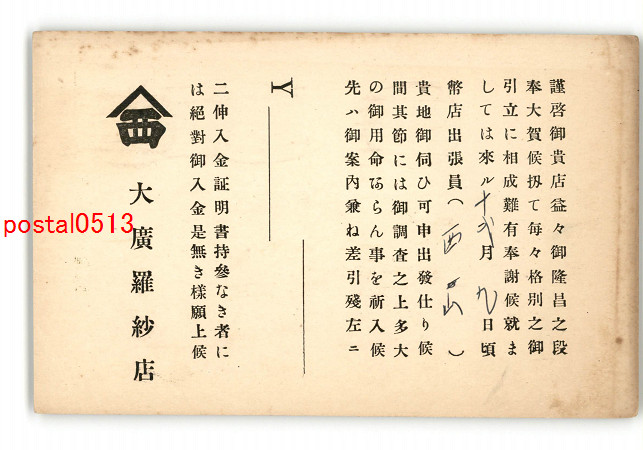 謹啓御貴店益々御隆昌之段
奉大賀候扨て每々格別之御
引立に相成難有奉謝候就ま
しては來ル十弐月九日頃
幣店出張員(西山)
貴地御伺ひ可申出發仕り候
間其節には御調査之上多大
の御用命あらん事を祈入候
先ハ御案內兼ね差引殘左ニ
Y
二伸入金証明書持參なき者に
は絕對御入金是無き樣願上候
西
大廣羅紗店
postal0513